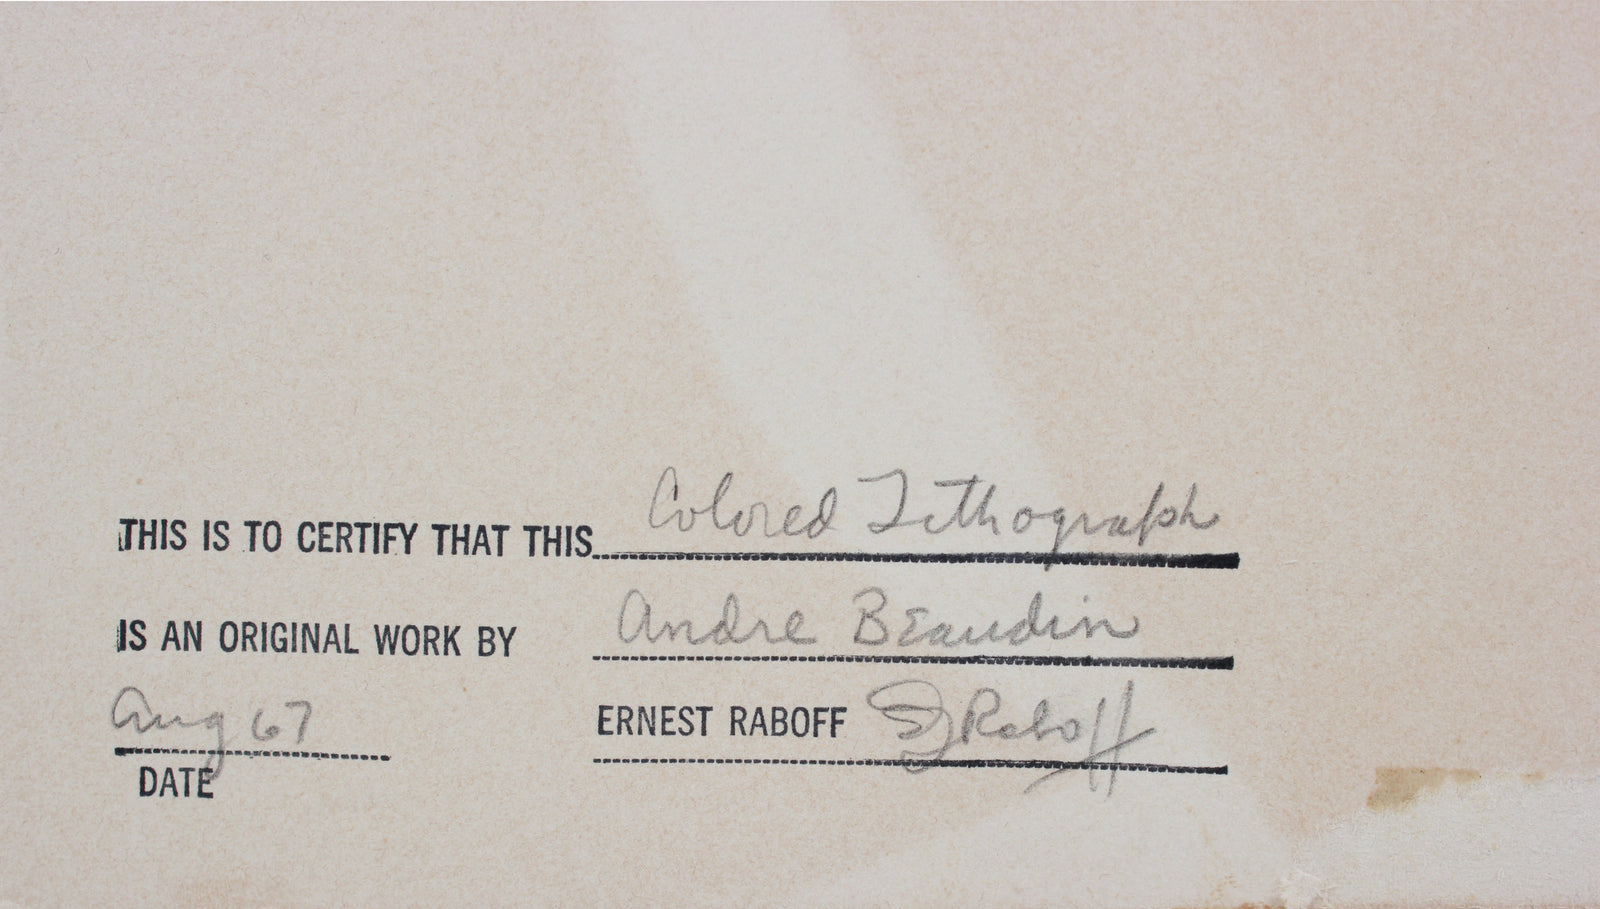 THIS IS TO CERTIFY THAT THIS Colored Lithograph
IS AN ORIGINAL WORK BY Andre Beaudin
Aug 67 ERNEST RABOFF EJ Raboff
DATE